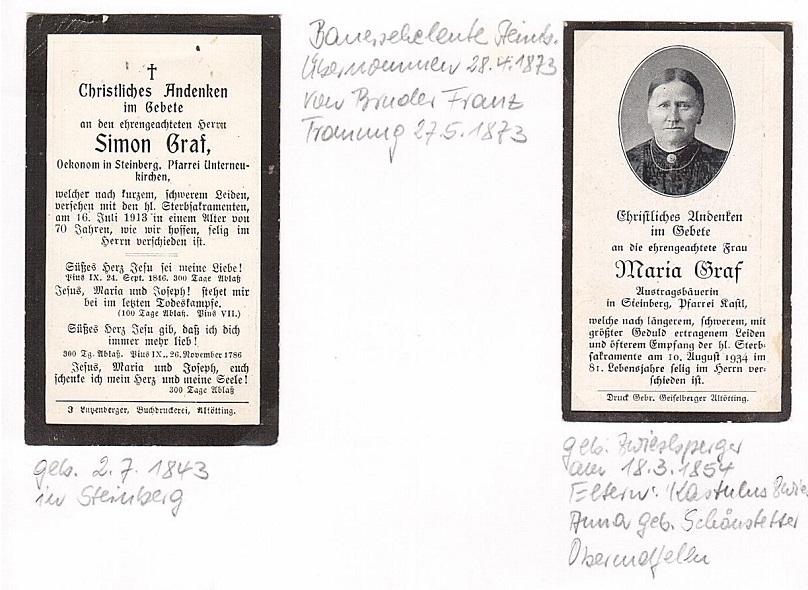 ✝
Christliches Andenken
im Gebete
an den ehrengeachteten Herrn
Simon Graf,
Oekonom in Steinberg, Pfarrei Unterneu-
kirchen,
welcher nach kurzem, schwerem Leiden,
versehen mit den hl. Sterbsakramenten,
am 16. Juli 1913 in einem Alter von
70 Jahren, wie wir hoffen, selig im
Herrn verschieden ist.
Süßes Herz Jesu sei meine Liebe!
Pius IX. 24. Sept. 1846. 300 Tage Ablaß
Jesus, Maria und Joseph! stehet mir
bei im letzten Todeskampfe.
(100 Tage Ablaß. Pius VII.)
Süßes Herz Jesu gib, daß ich dich
immer mehr lieb!
300 Tg. Ablaß. Pius IX., 26. November 1786
Jesus, Maria und Joseph, euch
schenke ich mein Herz und meine Seele!
300 Tage Ablaß
J Lutzenberger, Buchdruckerei, Altötting.
geb. 2.7. 1843
in Steinberg
Bauerseheleute Steinb.
Übernommen 28.4.1873
von Bruder Franz
Trauung 27.5.1873
Christliches Andenken
im Gebete
an die ehrengeachtete Frau
Maria Graf
Austragsbäuerin
in Steinberg, Pfarrei Kastl,
welche nach längerem, schwerem, mit
größter Geduld ertragenem Leiden
und öfterem Empfang der hl. Sterb-
sakramente am 10. August 1934 im
81. Lebensjahre selig im Herrn ver-
schieden ist.
Druck Gebr. Geiselberger Altötting.
geb. Zwieslsperger
am 18.3.1854
Eltern: Kastulus Zwie
Anna geb. Schönstetter